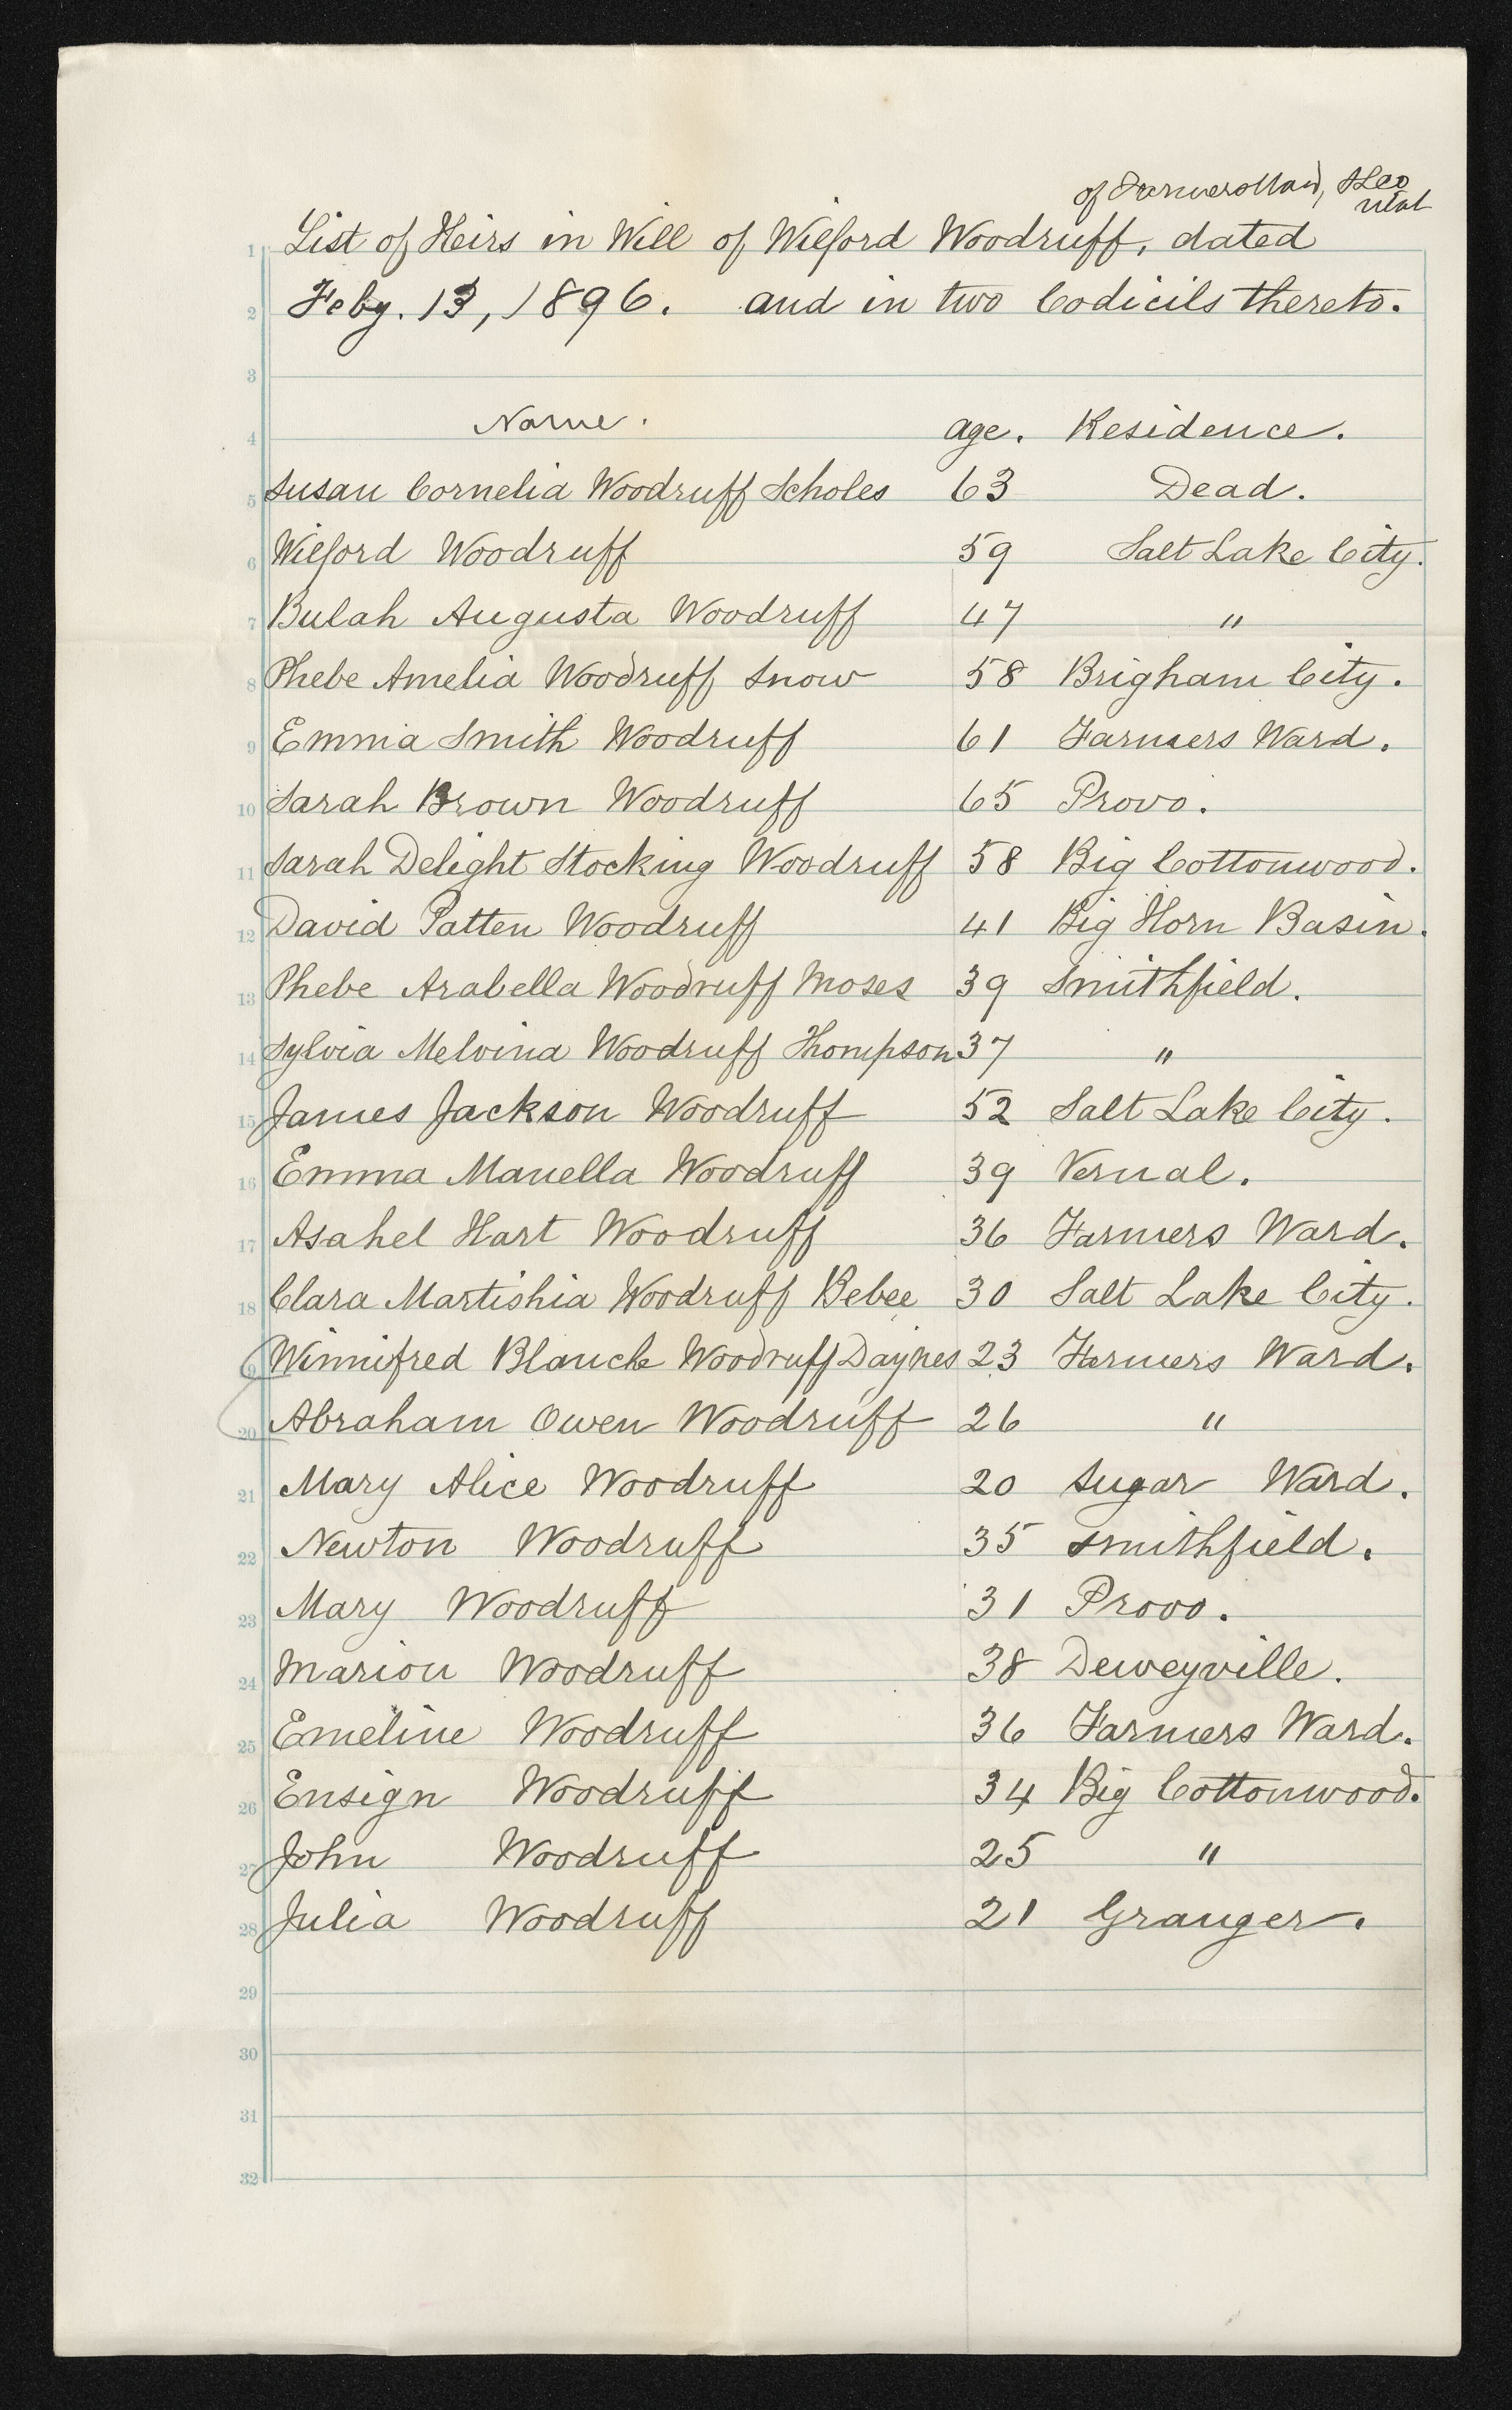 of Farmers Ward, SLCo
Utah
1 List of Heirs in Will of Wilford Woodruff, dated
2 Feby. 13, 1896. and in two Codicils thereto.
3
4 Name. age. Residence.
5 Susan Cornelia Woodruff Scholes 63 Dead.
6 Wilford Woodruff 59 Salt Lake City.
7 Bulah Augusta Woodruff 47 "
8 Phebe Amelia Woodruff Snow 58 Brigham City.
9 Emma Smith Woodruff 61 Farmers Ward.
10 Sarah Brown Woodruff 65 Provo.
11 Sarah Delight Stocking Woodruff 58 Big Cottonwood.
12 David Patten Woodruff 41 Big Horn Basin.
13 Phebe Arabella Woodruff Moses 39 Smithfield.
14 Sylvia Melvina Woodruff Thompson 37 "
15 James Jackson Woodruff 52 Salt Lake City.
16 Emma Manella Woodruff 39 Vernal.
17 Asahel Hart Woodruff 36 Farmers Ward.
18 Clara Martishia Woodruff Bebee 30 Salt Lake City.
19 Winnifred Blanche Woodruff Daynes 23 Farmers Ward.
20 Abraham Owen Woodruff 26 "
21 Mary Alice Woodruff 20 Sugar Ward.
22 Newton Woodruff 35 Smithfield.
23 Mary Woodruff 31 Provo.
24 Marion Woodruff 38 Deweyville.
25 Emeline Woodruff 36 Farmers Ward.
26 Ensign Woodruff 34 Big Cottonwood.
27 John Woodruff 25 "
28 Julia Woodruff 21 Granger.
29
30
31
32